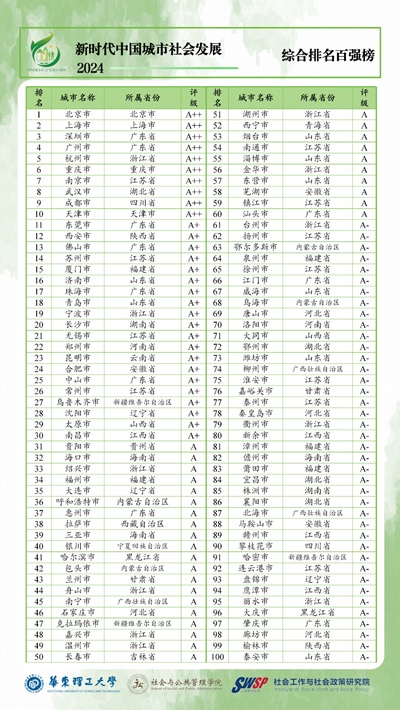 新时代中国城市社会发展
2024
综合排名百强榜
排名 城市名称 所属省份 评级
1 北京市 北京市 A++
2 上海市 上海市 A++
3 深圳市 广东省 A++
4 广州市 广东省 A++
5 杭州市 浙江省 A++
6 重庆市 重庆市 A++
7 南京市 江苏省 A++
8 武汉市 湖北省 A++
9 成都市 四川省 A++
10 天津市 天津市 A++
11 东莞市 广东省 A+
12 西安市 陕西省 A+
13 佛山市 广东省 A+
14 苏州市 江苏省 A+
15 厦门市 福建省 A+
16 济南市 山东省 A+
17 珠海市 广东省 A+
18 青岛市 山东省 A+
19 宁波市 浙江省 A+
20 长沙市 湖南省 A+
21 无锡市 江苏省 A+
22 郑州市 河南省 A+
23 昆明市 云南省 A+
24 合肥市 安徽省 A+
25 中山市 广东省 A+
26 常州市 江苏省 A+
27 乌鲁木齐市 新疆维吾尔自治区 A+
28 沈阳市 辽宁省 A+
29 太原市 山西省 A+
30 南昌市 江西省 A+
31 贵阳市 贵州省 A
32 海口市 海南省 A
33 绍兴市 浙江省 A
34 福州市 福建省 A
35 大连市 辽宁省 A
36 呼和浩特市 内蒙古自治区 A
37 惠州市 广东省 A
38 拉萨市 西藏自治区 A
39 三亚市 海南省 A
40 银川市 宁夏回族自治区 A
41 哈尔滨市 黑龙江省 A
42 包头市 内蒙古自治区 A
43 兰州市 甘肃省 A
44 舟山市 浙江省 A
45 南宁市 广西壮族自治区 A
46 石家庄市 河北省 A
47 克拉玛依市 新疆维吾尔自治区 A
48 嘉兴市 浙江省 A
49 温州市 浙江省 A
50 长春市 吉林省 A
排名 城市名称 所属省份 评级
51 湖州市 浙江省 A
52 西宁市 青海省 A
53 烟台市 山东省 A
54 南通市 江苏省 A
55 淄博市 山东省 A
56 金华市 浙江省 A
57 东营市 山东省 A
58 芜湖市 安徽省 A
59 镇江市 江苏省 A
60 汕头市 广东省 A
61 台州市 浙江省 A-
62 扬州市 江苏省 A-
63 鄂尔多斯市 内蒙古自治区 A-
64 泉州市 福建省 A-
65 徐州市 江苏省 A-
66 江门市 广东省 A-
67 威海市 山东省 A-
68 乌海市 内蒙古自治区 A-
69 唐山市 河北省 A-
70 洛阳市 河南省 A-
71 大同市 山西省 A-
72 鄂州市 湖北省 A-
73 潍坊市 山东省 A-
74 柳州市 广西壮族自治区 A-
75 淮安市 江苏省 A-
76 嘉峪关市 甘肃省 A-
77 泰州市 江苏省 A-
78 秦皇岛市 河北省 A-
79 衢州市 浙江省 A-
80 新余市 江西省 A-
81 漳州市 福建省 A-
82 儋州市 海南省 A-
83 莆田市 福建省 A-
84 宜昌市 湖北省 A-
85 株洲市 湖南省 A-
86 襄阳市 湖北省 A-
87 北海市 广西壮族自治区 A-
88 马鞍山市 安徽省 A-
89 赣州市 江西省 A-
90 攀枝花市 四川省 A-
91 哈密市 新疆维吾尔自治区 A-
92 连云港市 江苏省 A-
93 盘锦市 辽宁省 A-
94 鹰潭市 江西省 A-
95 丽水市 浙江省 A-
96 大庆市 黑龙江省 A-
97 肇庆市 广东省 A-
98 廊坊市 河北省 A-
99 榆林市 陕西省 A-
100 泰安市 山东省 A-
华东理工大学
社会与公共管理学院
School of Social and Public Administration
SWSP
社会工作与社会政策研究院
Institute of Social Work and Social Policy